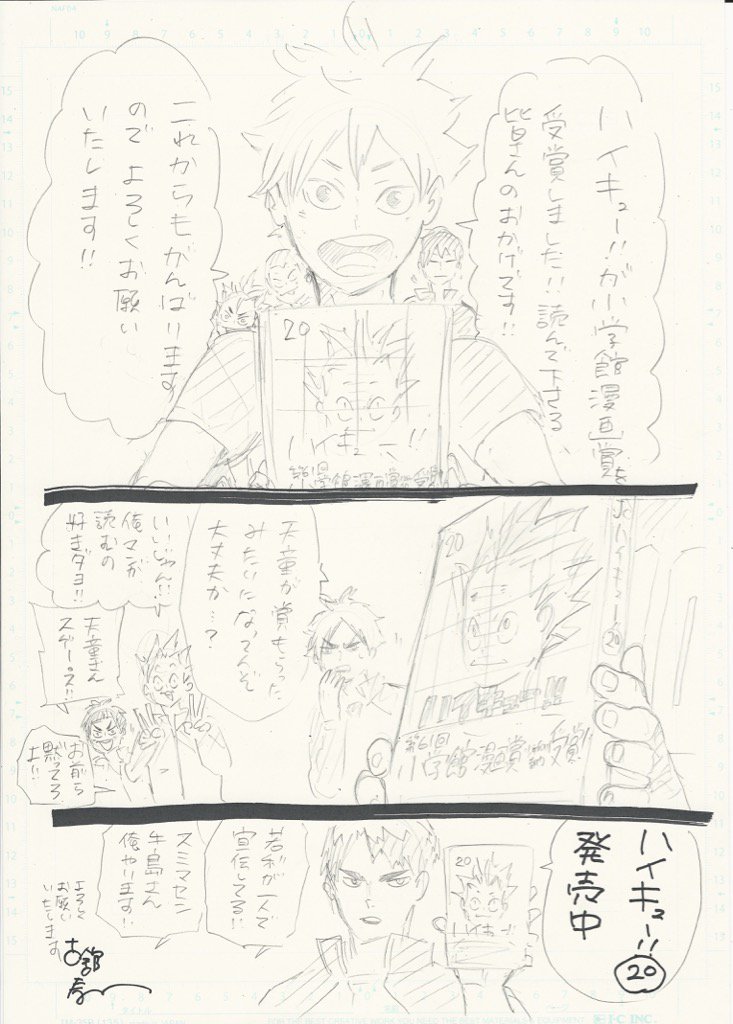 ハイキュー!!が小学館漫画賞を
受賞しました!!読んで下さる
皆さんのおかげです!!
これからもがんばります
ので よろしくお願い
いたします!!
20
ハイキュー!!
ハイキュー!!
20
20
ハイキュー!!
第61回
小学館漫画賞
受賞
天童が賞もらった
みたいになってんぞ
大丈夫か…?
いいじゃん!!
俺マンガ
読むの
好きダヨ!!
天童さん
スゲーッス!!
お前ら
黙ってろ
よ!!
ハイキュー!!
20
発売中
20
ハイキュー!!
若利が一人で
宣伝してる!!
スミマセン
牛島さん
俺やります!!
よろしく
お願い
いたします
古舘
春一